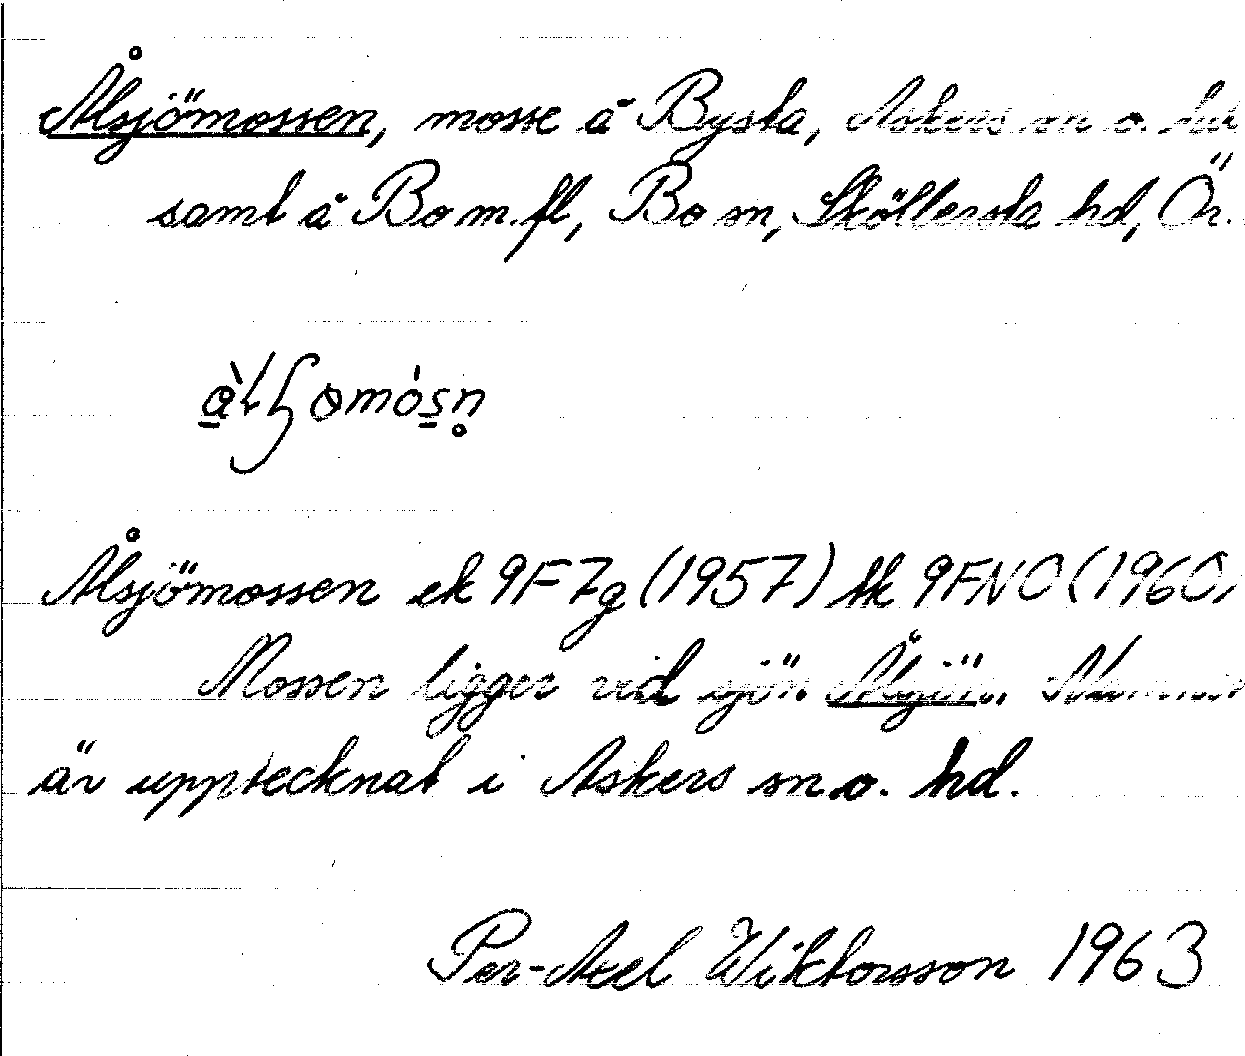 Ålsjömossen, mosse å Bysta, Askers sn o. hd
samt å Bo m.fl, Bo sn, Sköllersta hd, Ör.
Ålsjömossen ek 9F7g (1957) tk 9FNO (1960)
Mossen ligger vid sjön Ålsjön.
är upptecknat i Askers sn o. hd.
Per-Axel Wiktorsson 1963